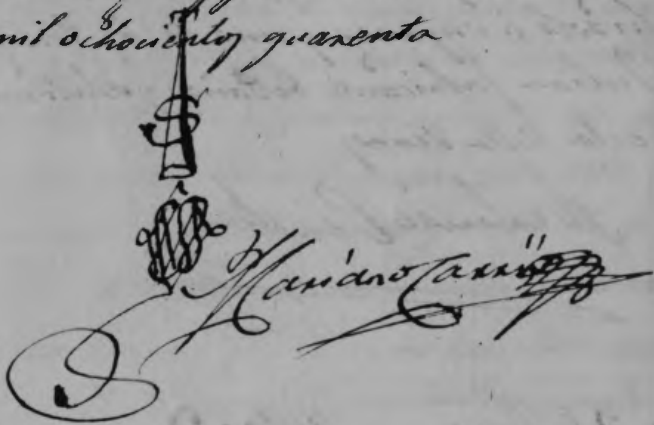 mil ochocientos quarenta
Mariano Carrió